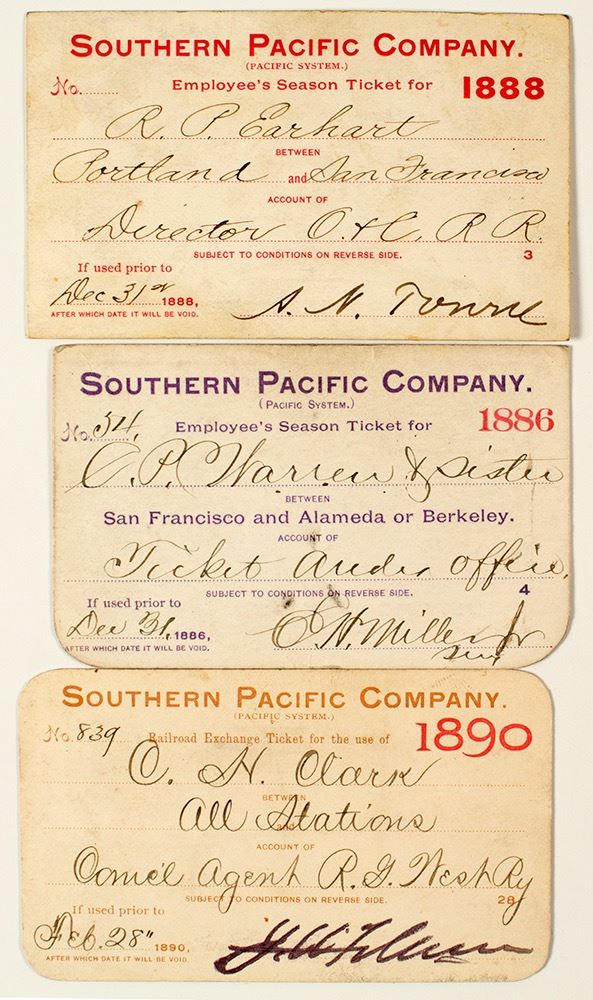 SOUTHERN PACIFIC COMPANY.
(PACIFIC SYSTEM.)
No. Employee's Season Ticket for 1888
R. P. Earhart
BETWEEN
Portland and San Francisco
ACCOUNT OF
Director O. & C. R R.
SUBJECT TO CONDITIONS ON REVERSE SIDE. 3
If used prior to
Dec 31st 1888,
AFTER WHICH DATE IT WILL BE VOID.
A. N. Towne
SOUTHERN PACIFIC COMPANY.
(PACIFIC SYSTEM.)
No. 54, Employee's Season Ticket for 1886
C. P. Warren & Sister
BETWEEN
San Francisco and Alameda or Berkeley.
ACCOUNT OF
Ticket office,
SUBJECT TO CONDITIONS ON REVERSE SIDE. 4
If used prior to
Dec 31, 1886,
AFTER WHICH DATE IT WILL BE VOID.
E H. Miller Jr
SOUTHERN PACIFIC COMPANY.
(PACIFIC SYSTEM.)
No. 839 Railroad Exchange Ticket for the use of 1890
C. H. Clark
BETWEEN
All Stations
and
ACCOUNT OF
Comcl Agent R. G. West Ry
SUBJECT TO CONDITIONS ON REVERSE SIDE. 28
If used prior to
Feb. 28" 1890,
AFTER WHICH DATE IT WILL BE VOID.